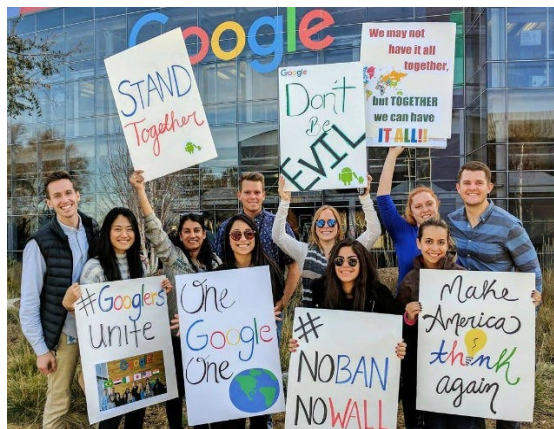 Google
STAND
Together
Google
Don't
Be
EVIL
We may not
have it all
together,
but TOGETHER
we can have
IT ALL!!
#Googlers
unite
One
Google
One
#
NO BAN
NO WALL
Make
America
think
again